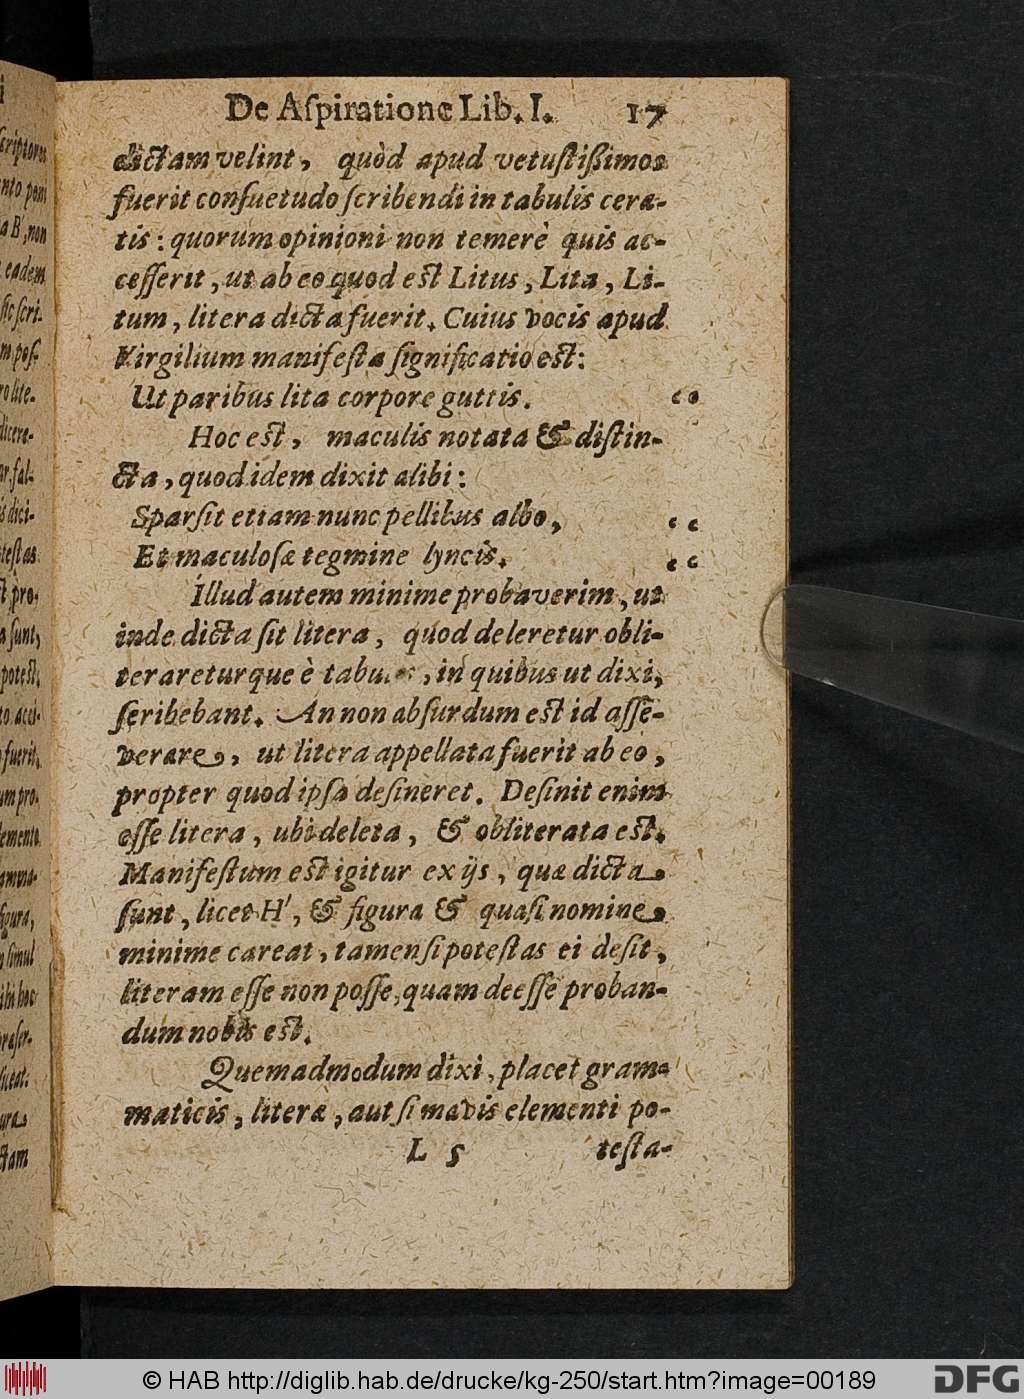 De Aſpiratione Lib. I. 17
dictam velint, quòd apud vetuſtißimos
fuerit conſuetudo ſcribendi in tabulis ceræ-
tis: quorum opinioni non temerè quis ac-
ceſſerit, ut ab eo quod eſt Litus, Lita, Li-
tum, litera dicta fuerit. Cuius vocis apud
Virgilium manifeſta ſignificatio eſt:
Ut paribus lita corpore guttis.
Hoc eſt, maculis notata & diſtin-
cta, quod idem dixit alibi:
Sparſit etiam nunc pellibus albo,
Et maculoſæ tegmine lyncis.
Illud autem minime probaverim, ut
inde dicta ſit litera, quod deleretur obli-
terareturque è , in quibus ut dixi,
ſcribebant. An non abſurdum eſt id aſſe-
verare, ut litera appellata fuerit ab eo,
propter quod ipſa deſineret. Deſinit enim
eſſe litera, ubi deleta, & obliterata eſt.
Manifeſtum eſt igitur ex ijs, quæ dicta
ſunt, licet H', & figura & quaſi nomine
minime careat, tamen ſi poteſtas ei deſit,
literam eſſe non poſſe, quam deeſſe proban-
dum nobis eſt.
Quemadmodum dixi, placet gram-
maticis, literæ, aut ſi mavis elementi po-
L 5 teſta-
© HAB http://diglib.hab.de/drucke/kg-250/start.htm?image=00189
DFG